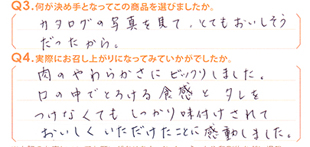 Q3.何が決め手となってこの商品を選びましたか。
カタログの写真を見て、とてもおいしそう
だったから。
Q4.実際にお召し上がりになってみていかがでしたか。
肉のやわらかさにビックリしました。
口の中でとろける食感とタレを
つけなくてもしっかり味付けされて
おいしくいただけたことに感動しました。